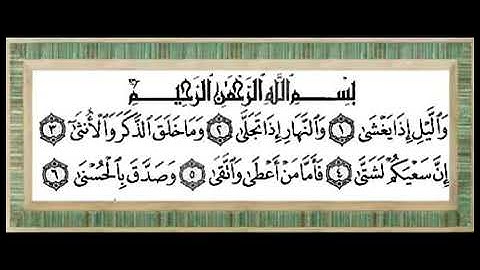 بِسْمِ اللَّهِ الرَّحْمَٰنِ الرَّحِيمِ
وَالَّيْلِ إِذَا يَغْشَىٰ ١ وَالنَّهَارِ إِذَا تَجَلَّىٰ ٢ وَمَا خَلَقَ الذَّكَرَ وَالْأُنثَىٰ ٣
إِنَّ سَعْيَكُمْ لَشَتَّىٰ ٤ فَأَمَّا مَنْ أَعْطَىٰ وَاتَّقَىٰ ٥ وَصَدَّقَ بِالْحُسْنَىٰ ٦